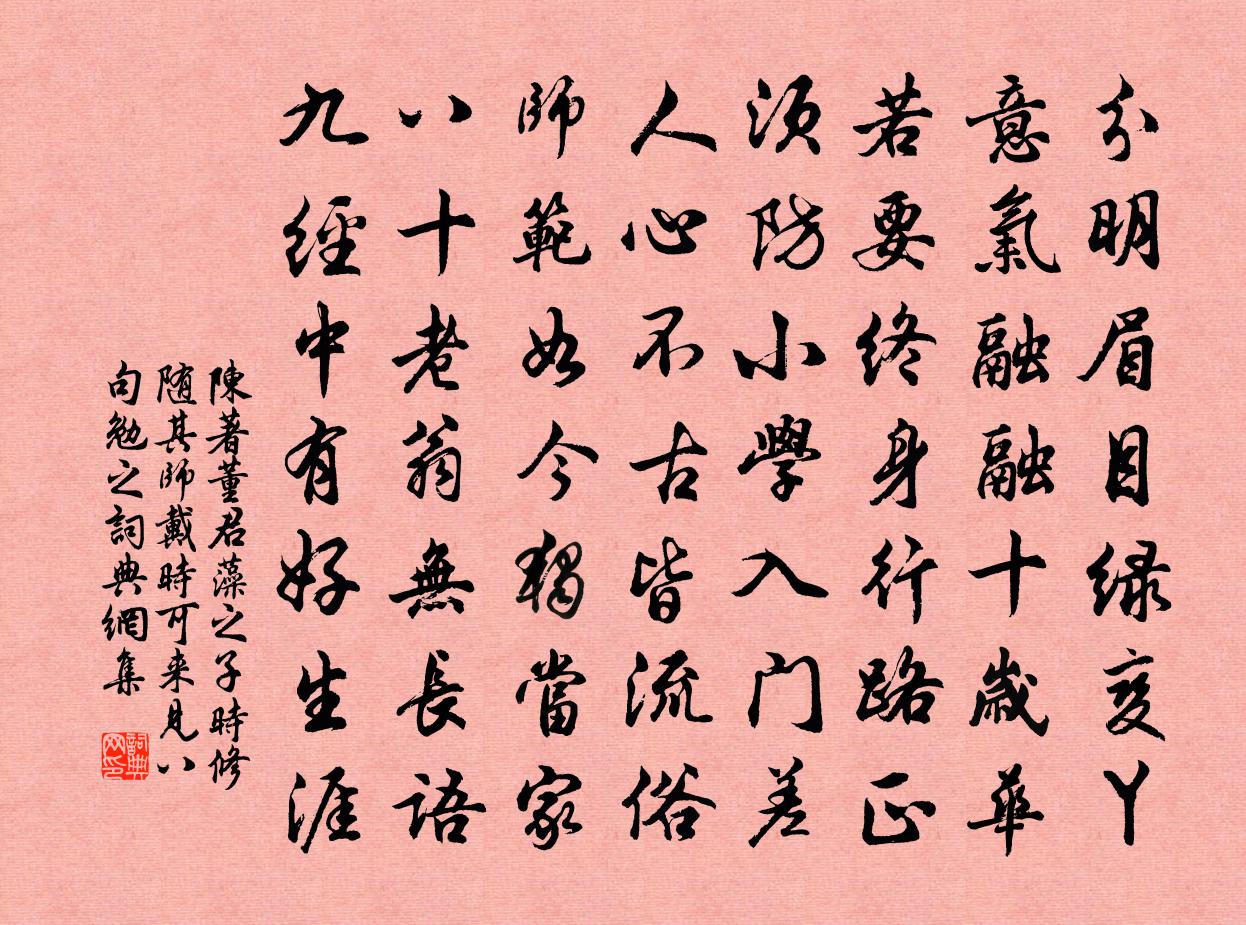 分明眉目緑㚇丫
意氣融融十歲華
若要終身行路正
須防小學入门差
人心不古皆流俗
師範如今獨當家
八十老翁無長語
九經中有好生涯
陳著董君藻之子時修
随其師戴時可来見八
句勉之詞典網集
詞典
网印